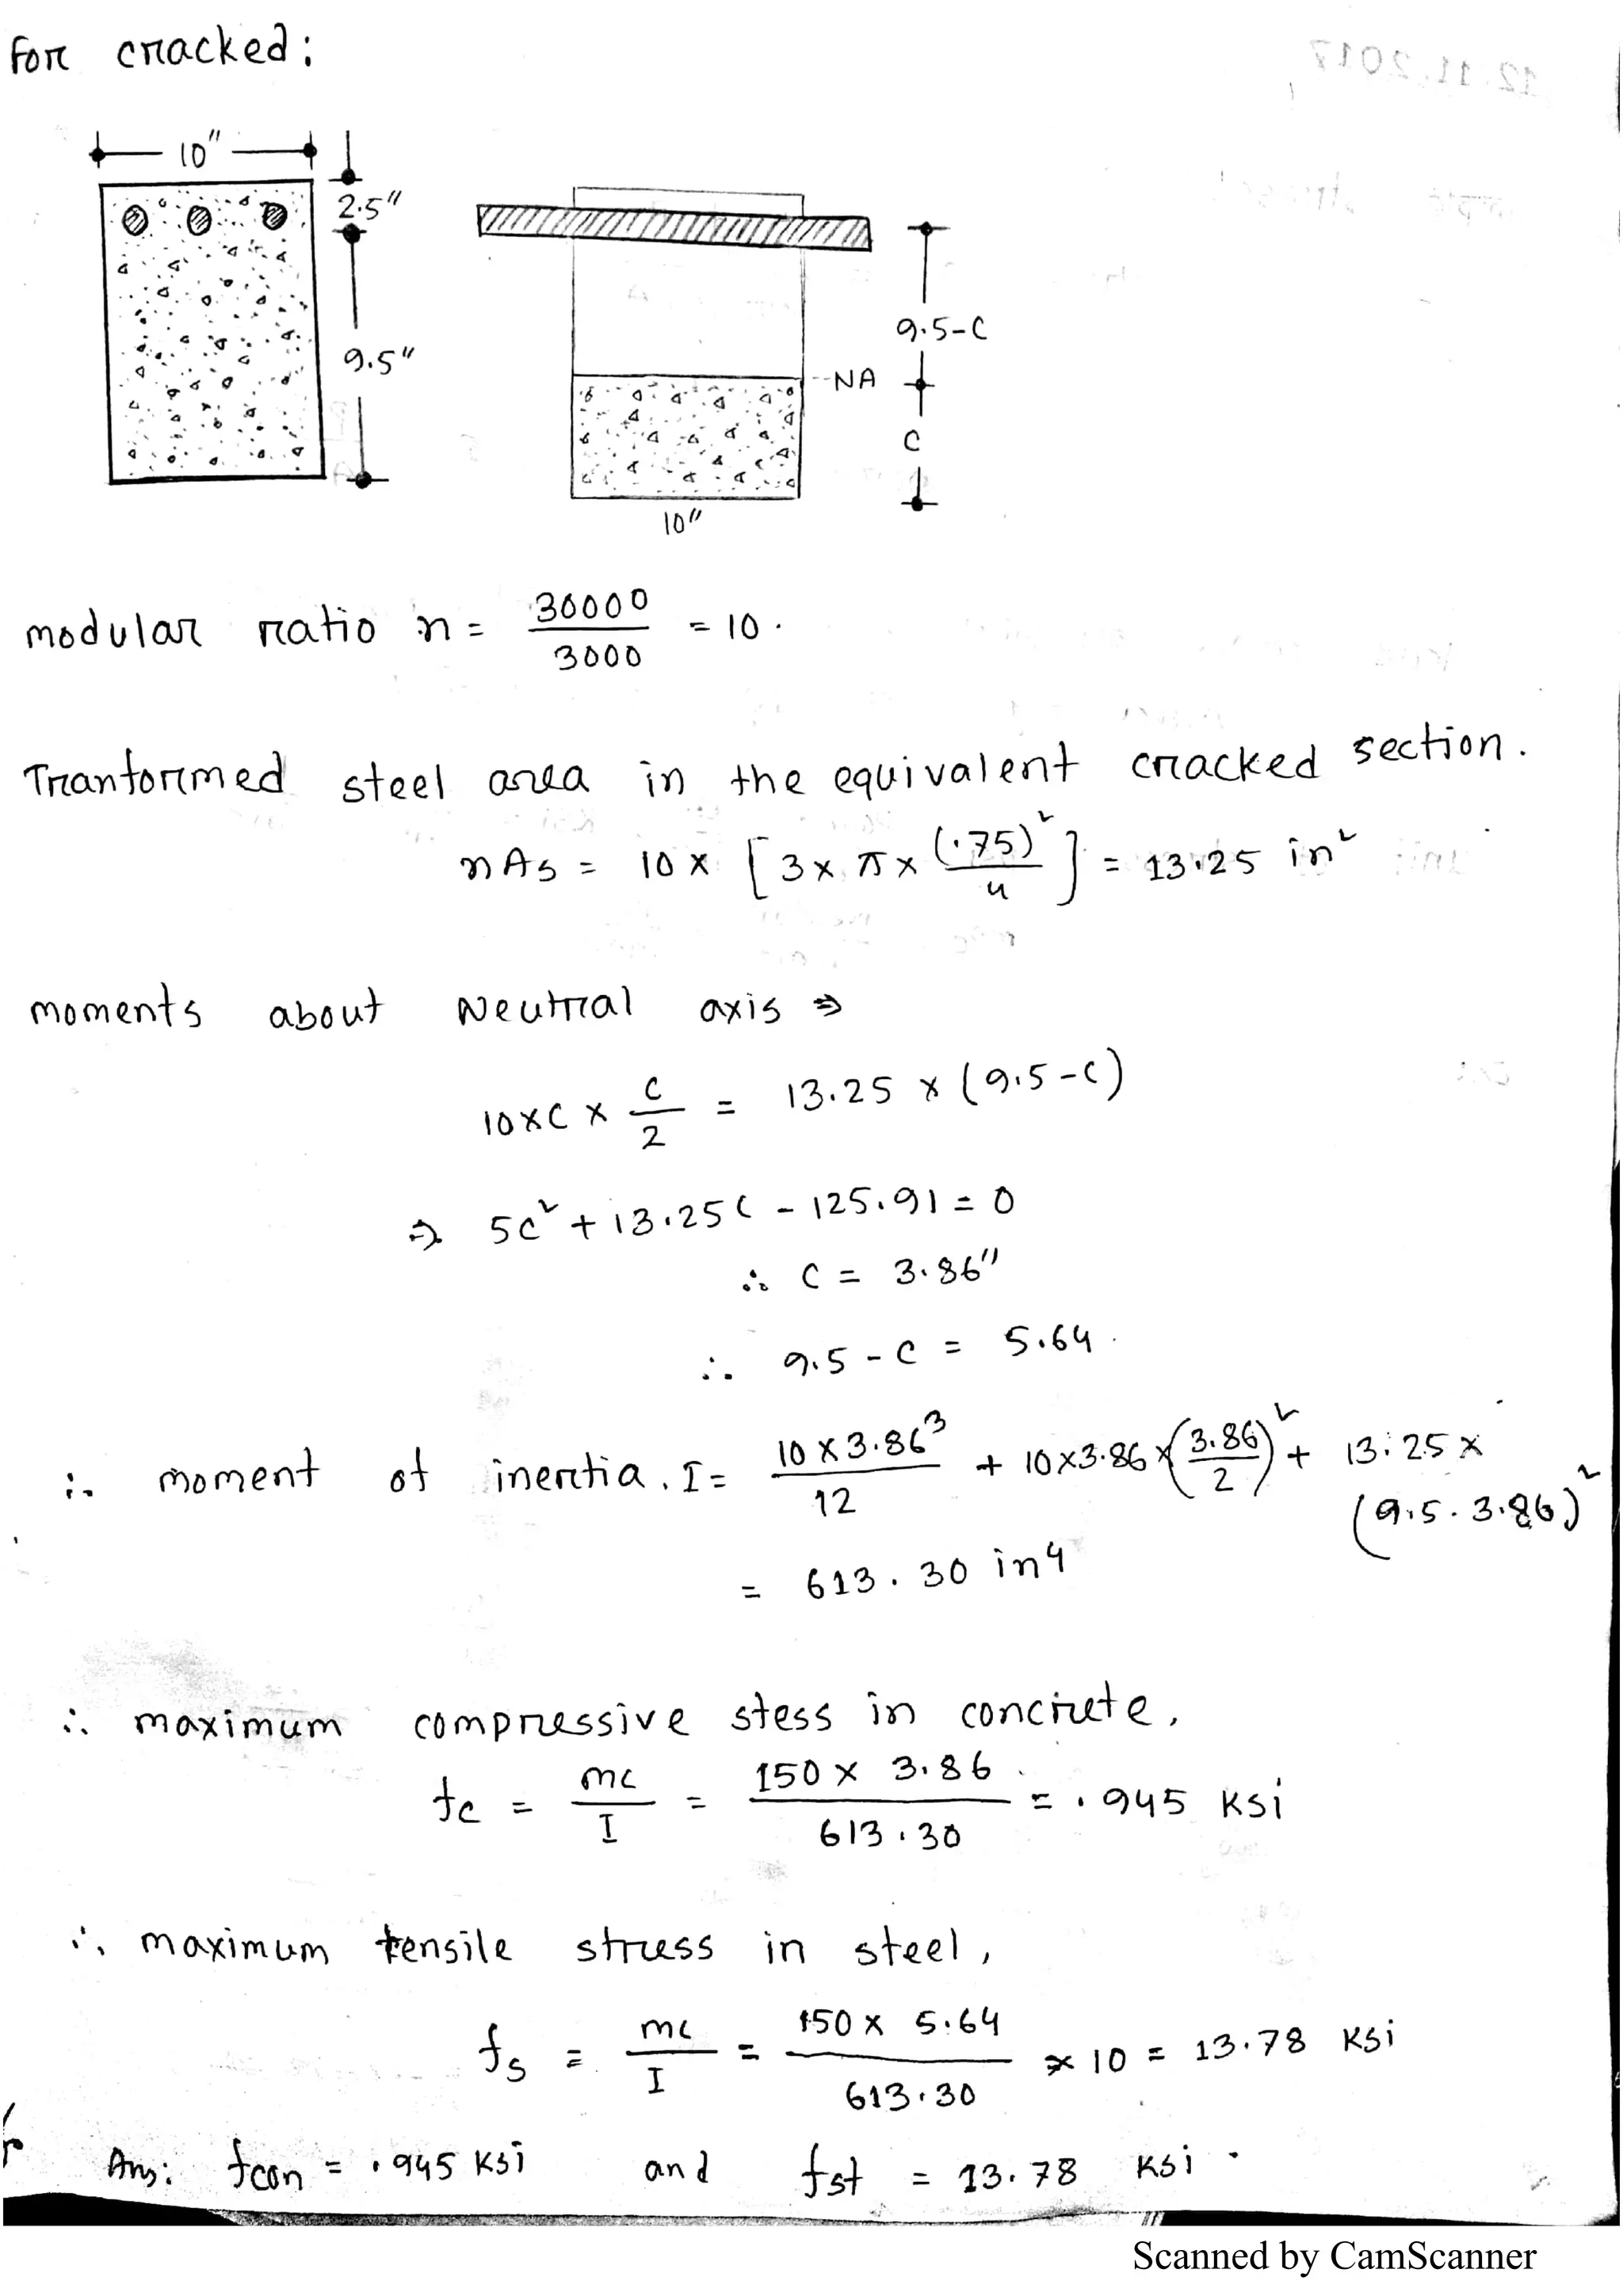 For cracked:
10"
2.5"
9.5"
9.5-C
NA
C
10"
modular ratio n = 30000 / 3000 = 10.
Tranformed steel area in the equivalent cracked section.
nAs = 10 x [3 x π x (.75)² / 4] = 13.25 in²
moments about Neutral axis ⇒
10xC x C/2 = 13.25 x (9.5-C)
⇒ 5C² + 13.25C - 125.91 = 0
∴ C = 3.86"
∴ 9.5 - C = 5.64.
∴ moment of inertia. I = 10 x 3.86³ / 12 + 10x3.86 x (3.86/2)² + 13.25 x
(9.5 - 3.86)²
= 613.30 in4
∴ maximum compressive stess in concrete,
fc = mc / I = 150 x 3.86 / 613.30 = .945 Ksi
∴ maximum tensile stress in steel,
fs = mc / I = 150 x 5.64 / 613.30 x 10 = 13.78 Ksi
Ans: fcon = .945 Ksi and fst = 13.78 Ksi.
Scanned by CamScanner